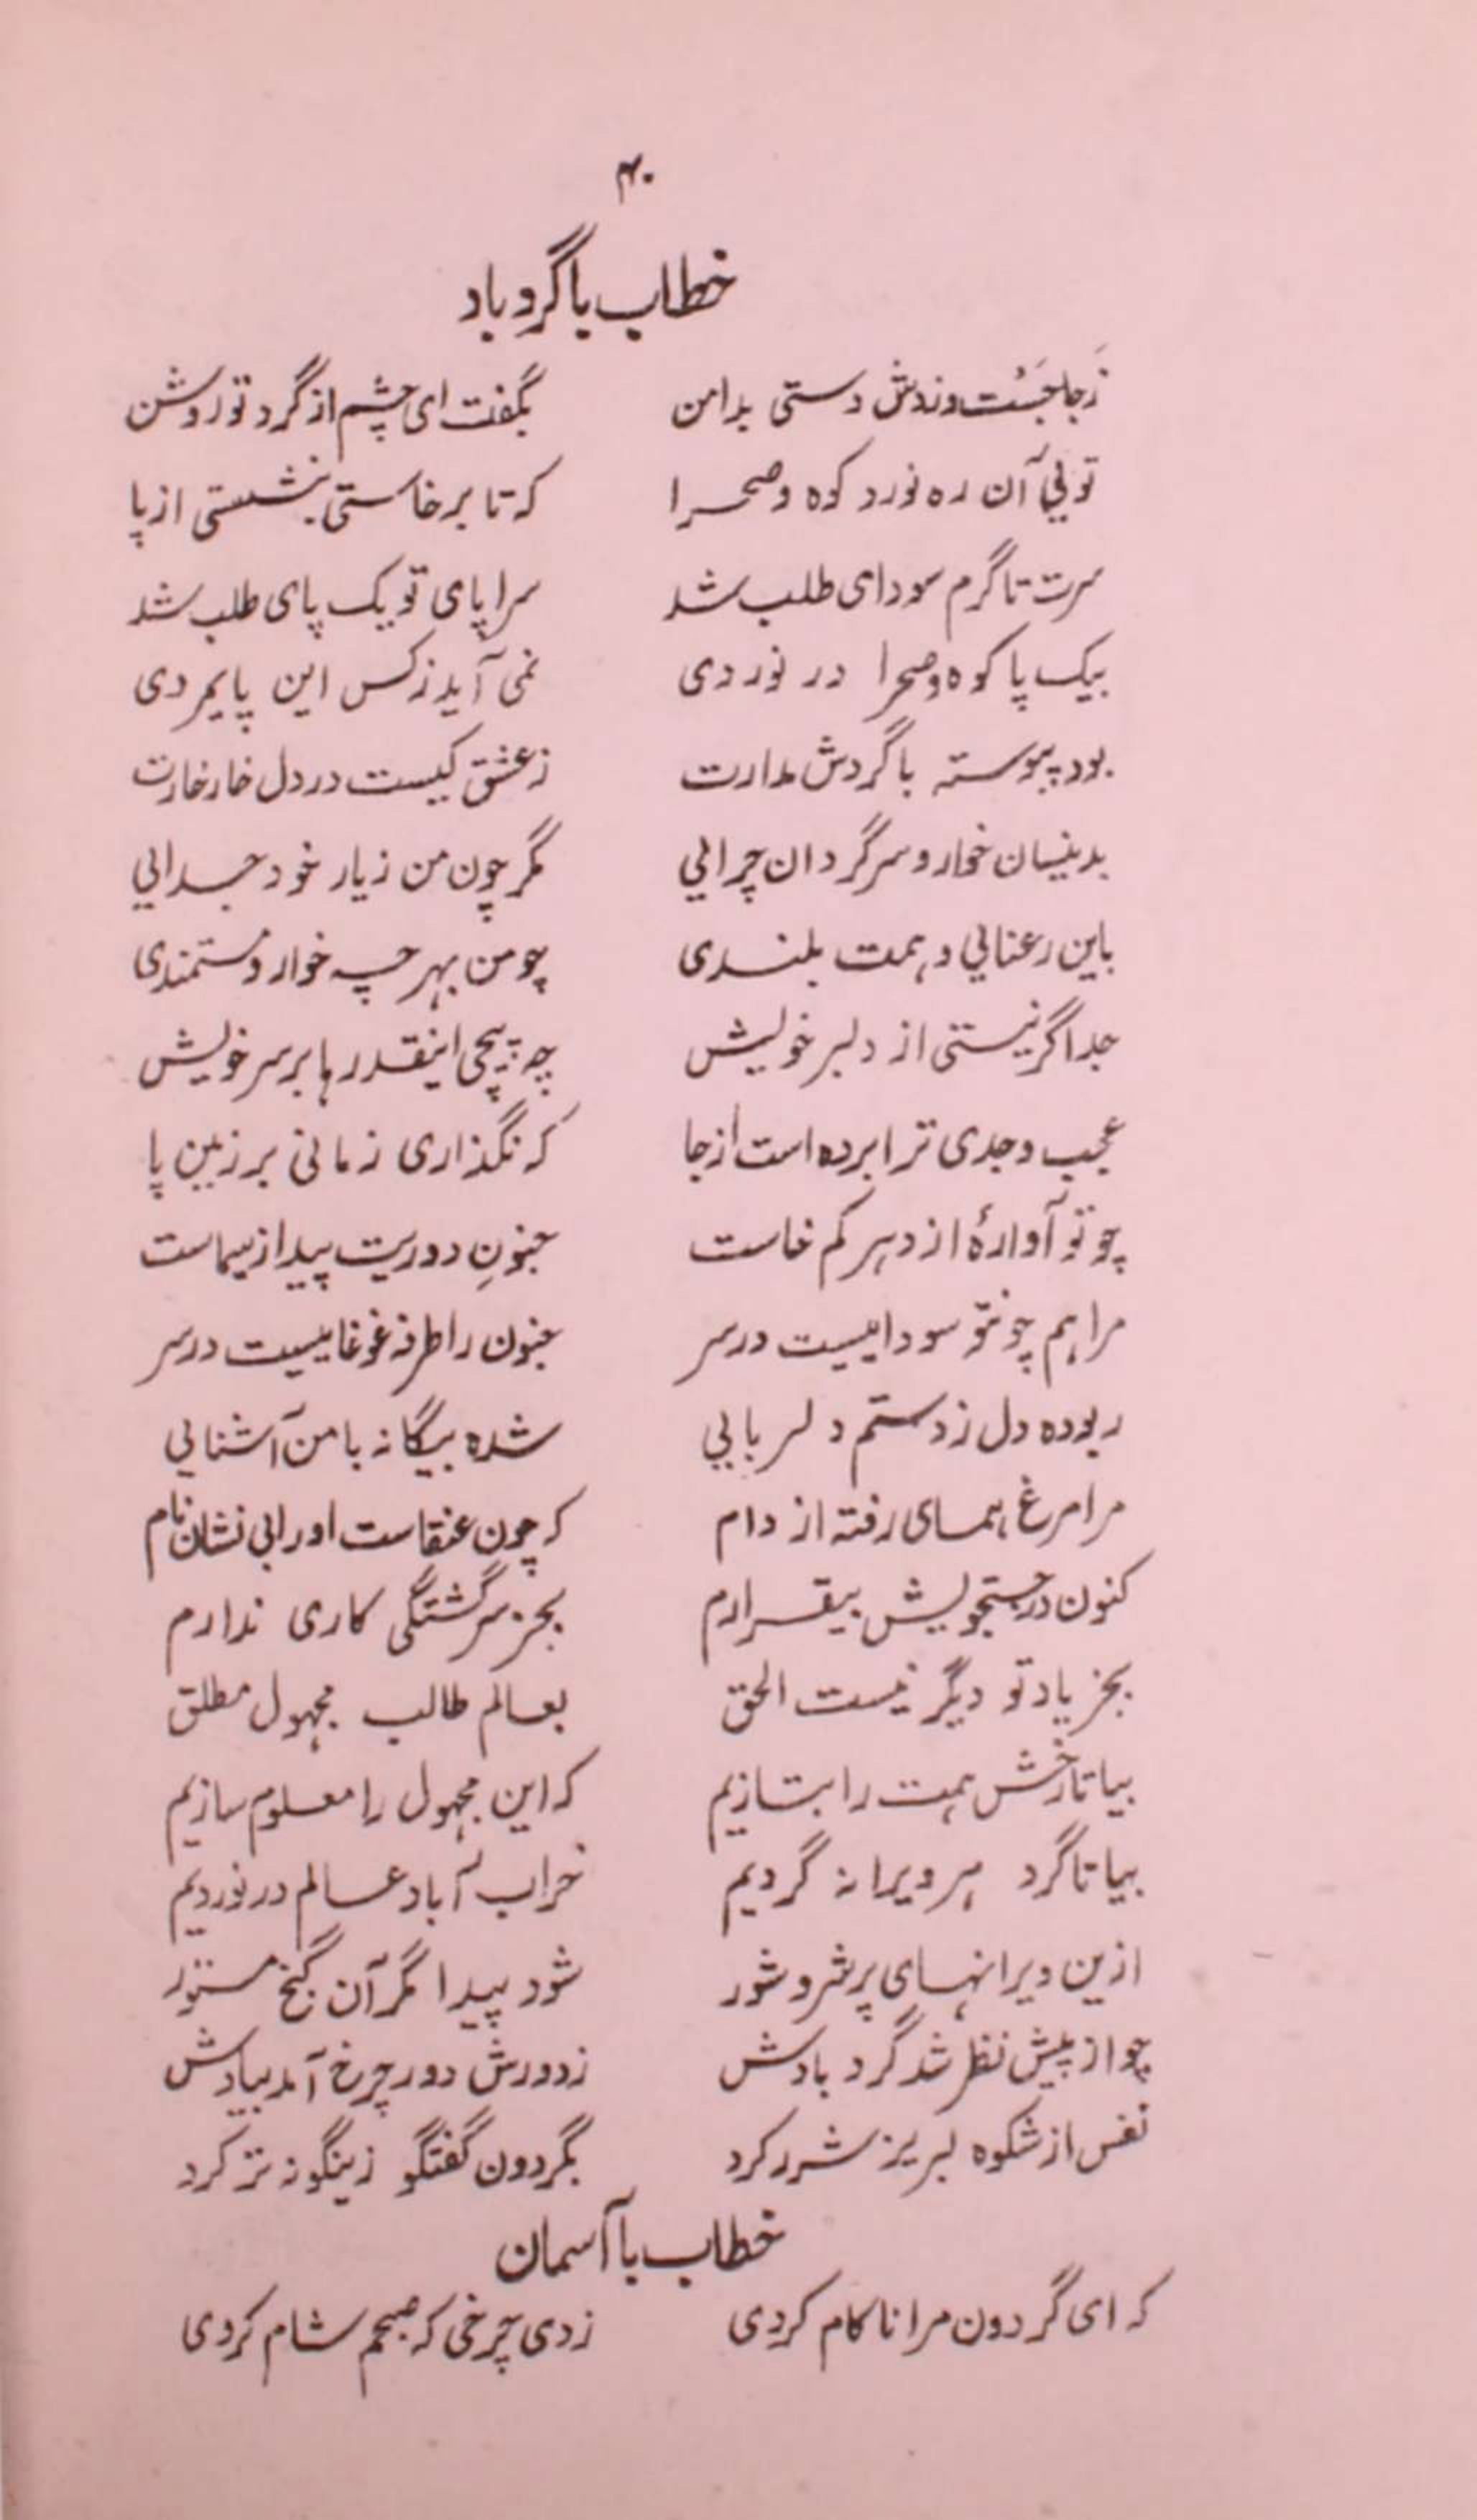 ۴۰
خطاب باگردباد
زجا جَست وزدش دستی بدامن بگفت ای چشم از گرد تو روشن
توئی آن ره نورد کوه وصحرا که تا برخاستی ننشستی از پا
سرت تا گرم سودای طلب شد سراپای تو یک پای طلب شد
بیک پا کوه وصحرا در نوردی نمی آید زکس این پایمردی
بود پیوسته باگردش مدارت زعشق کیست در دل خارخارت
بدینسان خوار و سرگردان چرائی مگر چون من زیار خود جدائی
باین رعنائی وهمت بلندی چو من بهر چه خوار ومستمندی
جدا گر نیستی از دلبر خویش چه پیچی اینقدرها بر سر خویش
عجب وجدی ترا برده است ازجا که نگذاری زمانی بر زمین پا
چو تو آوارهٔ از دهر کم خاست جنونِ دوریت پیدا زسیماست
مرا هم چو تو سودائیست در سر جنون را طرفه غوغائیست در سر
ربوده دل زدستم دلربائی شده بیگانه بامن آشنائی
مرا مرغ همای رفته از دام که چون عنقاست اورا بی نشان نام
کنون درجستجویش بیقرارم بجز سرگشتگی کاری ندارم
بجز یاد تو دیگر نیست الحق بعالم طالب مجهول مطلق
بیا تا رخش همت را بتازیم که این مجهول را معلوم سازیم
بیا تا گرد هر ویرانه گردیم خراب آباد عالم درنوردیم
ازین ویرانهای پرشر وشور شود پیدا مگر آن گنج مستور
چو از پیش نظر شد گرد بادش زدورش دور چرخ آمد بیادش
نفس از شکوه لبریز شرر کرد بگردون گفتگو زینگونه تر کرد
خطاب باآسمان
که ای گردون مرا ناکام کردی زدی چرخی که صبحم شام کردی